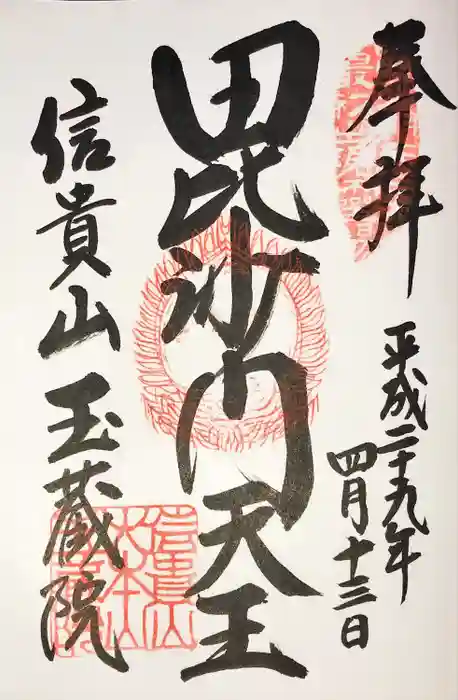 奉拝
平成二十九年
四月十三日
毘沙門天王
信貴山玉蔵院